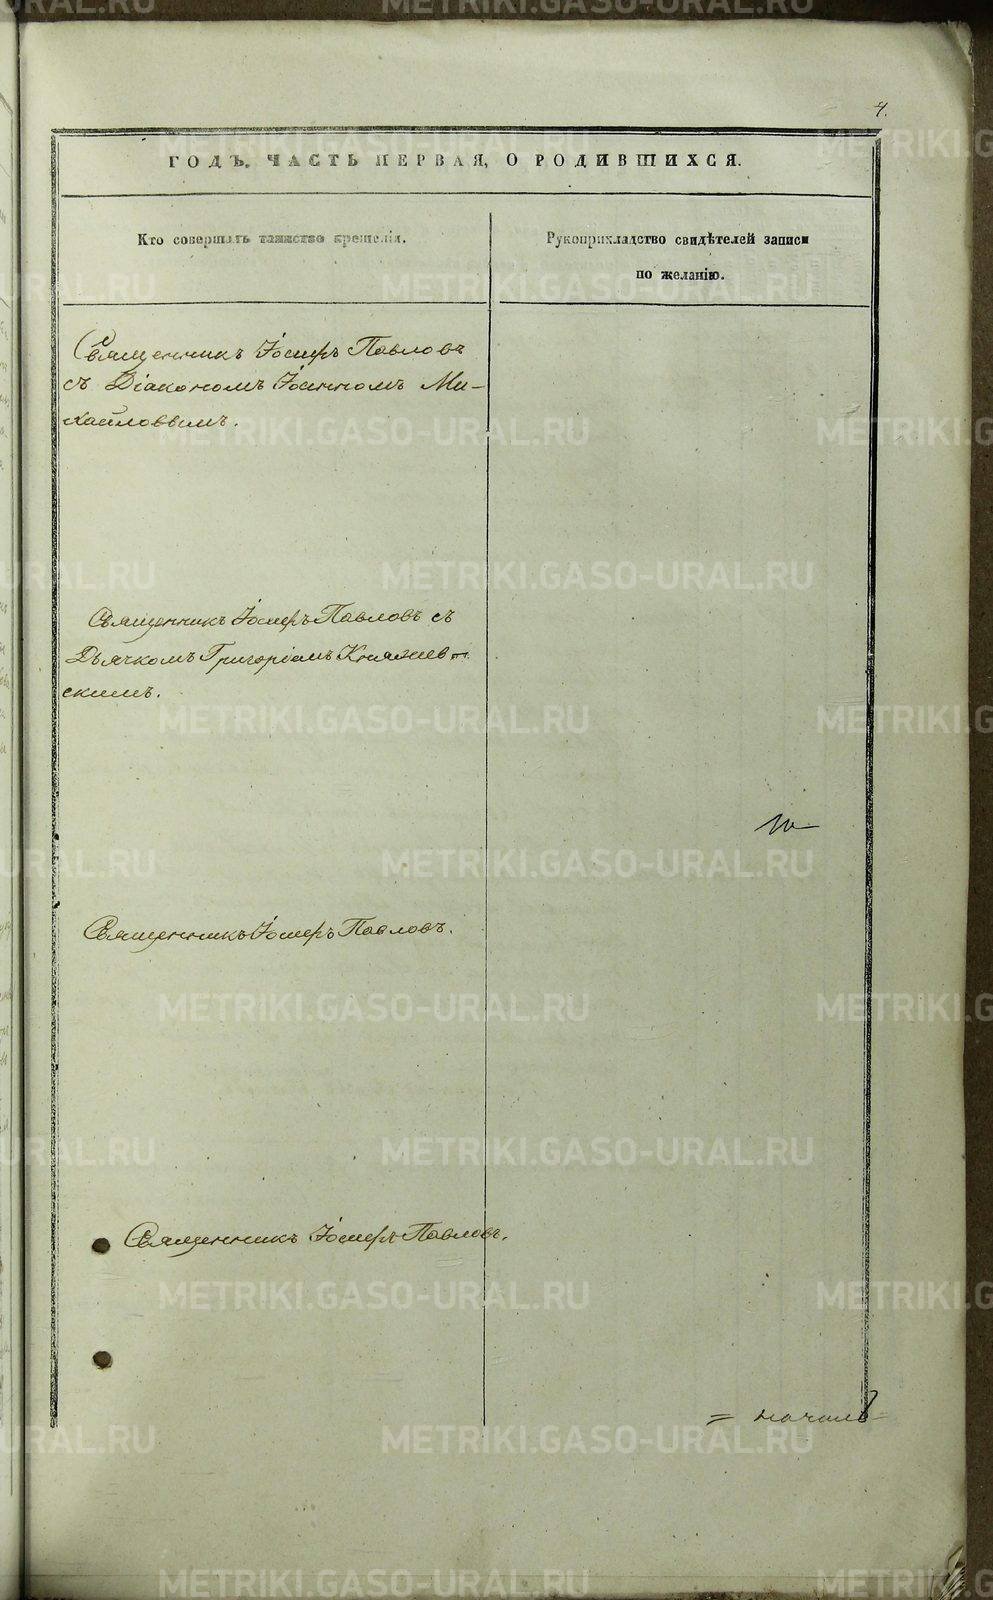 4.
ГОДЪ. ЧАСТЬ ПЕРВАЯ, О РОДИВШИХСЯ.
Кто совершалъ таинство крещенія.
Рукоприкладство свидѣтелей записи
по желанію.
Священникъ Іосифъ Павловъ
съ Діакономъ Іоанномъ Ми-
хайловымъ.
Священникъ Іосифъ Павловъ съ
Дьячкомъ Григоріемъ Княжев-
скимъ.
Священникъ Іосифъ Павловъ.
Священникъ Іосифъ Павловъ.
METRIKI.GASO-URAL.RU